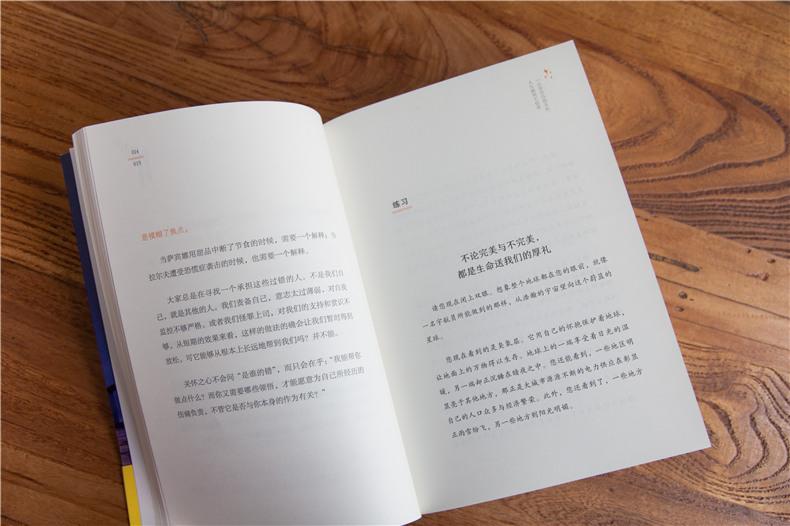 014
015
是模糊了焦点。
当萨宾娜用甜品中断了节食的时候，需要一个解释；当
拉尔夫遭受恐慌症袭击的时候，也需要一个解释。
大家总是在寻找一个承担这些过错的人。不是我们自
己，就是其他的人。我们责备自己，意志太过薄弱，对自我
监控不够严格。或者我们怪罪上司，对我们的支持和赏识不
够。从短期的效果来看，这样的做法的确会让我们暂时得到
放松，可它能够从根本上长远地帮到我们吗？并不能。
关怀之心不会问“是谁的错”，而只会在乎：“我能帮你
做点什么？而你又需要哪些领悟，才能愿意为自己所经历的
伤痛负责，不管它是否与你本身的作为有关？”
练习
不论完美与不完美，
都是生命送我们的厚礼
请您现在闭上双眼。想象整个地球都在您的眼前，就像
一名宇航员所能做到的那样，从浩瀚的宇宙望向这个蔚蓝的
星球。
您现在看到的是臭氧层。它用自己的怀抱保护着地球，
让地面上的万物得以生存。地球上的一端享受着日光的温
暖，另一端却正沉睡在暗夜之中。您还能看到，一些地区明
显亮于其他地方，那正是大城市源源不断的电力供应在彰显
自己的人口众多与经济繁荣。此外，您还看到了，一些地方
正雨雪纷飞，另一些地方则阳光明媚。